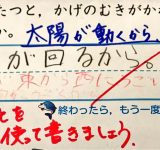 たつと、かげのむきがかわ
か。太陽が動くから。
が回るから。
終わったら、もう一度
とを
使って書きましょう。